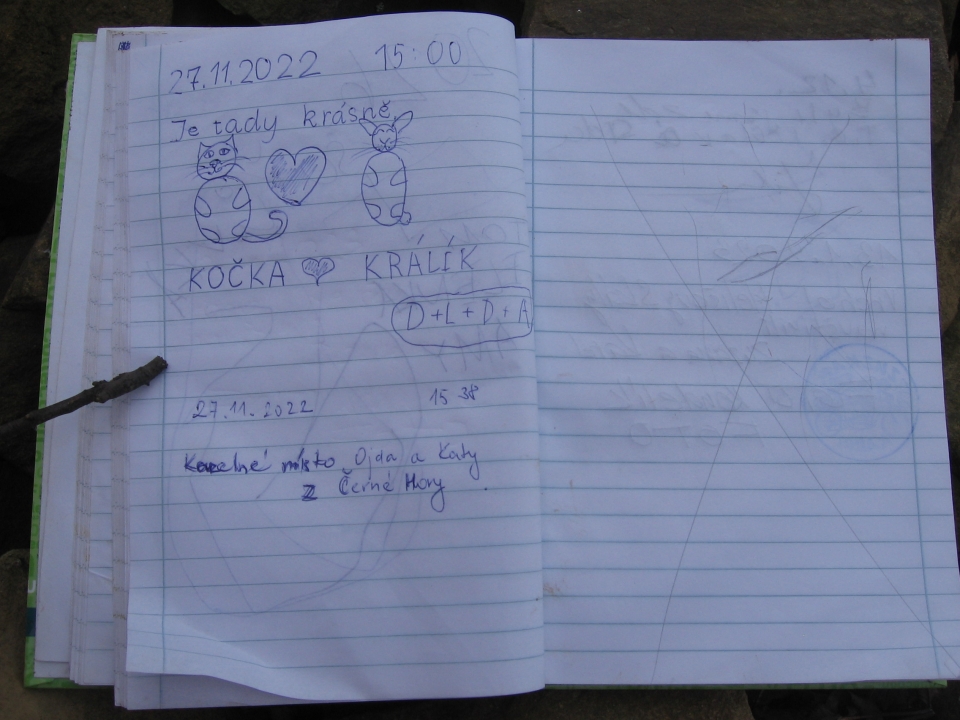 27.11.2022 15:00
Je tady krásně
KOČKA KRÁLÍK
D+L+D+A
27.11.2022 15 38
místo Ojda a Katy
z Černé Hory